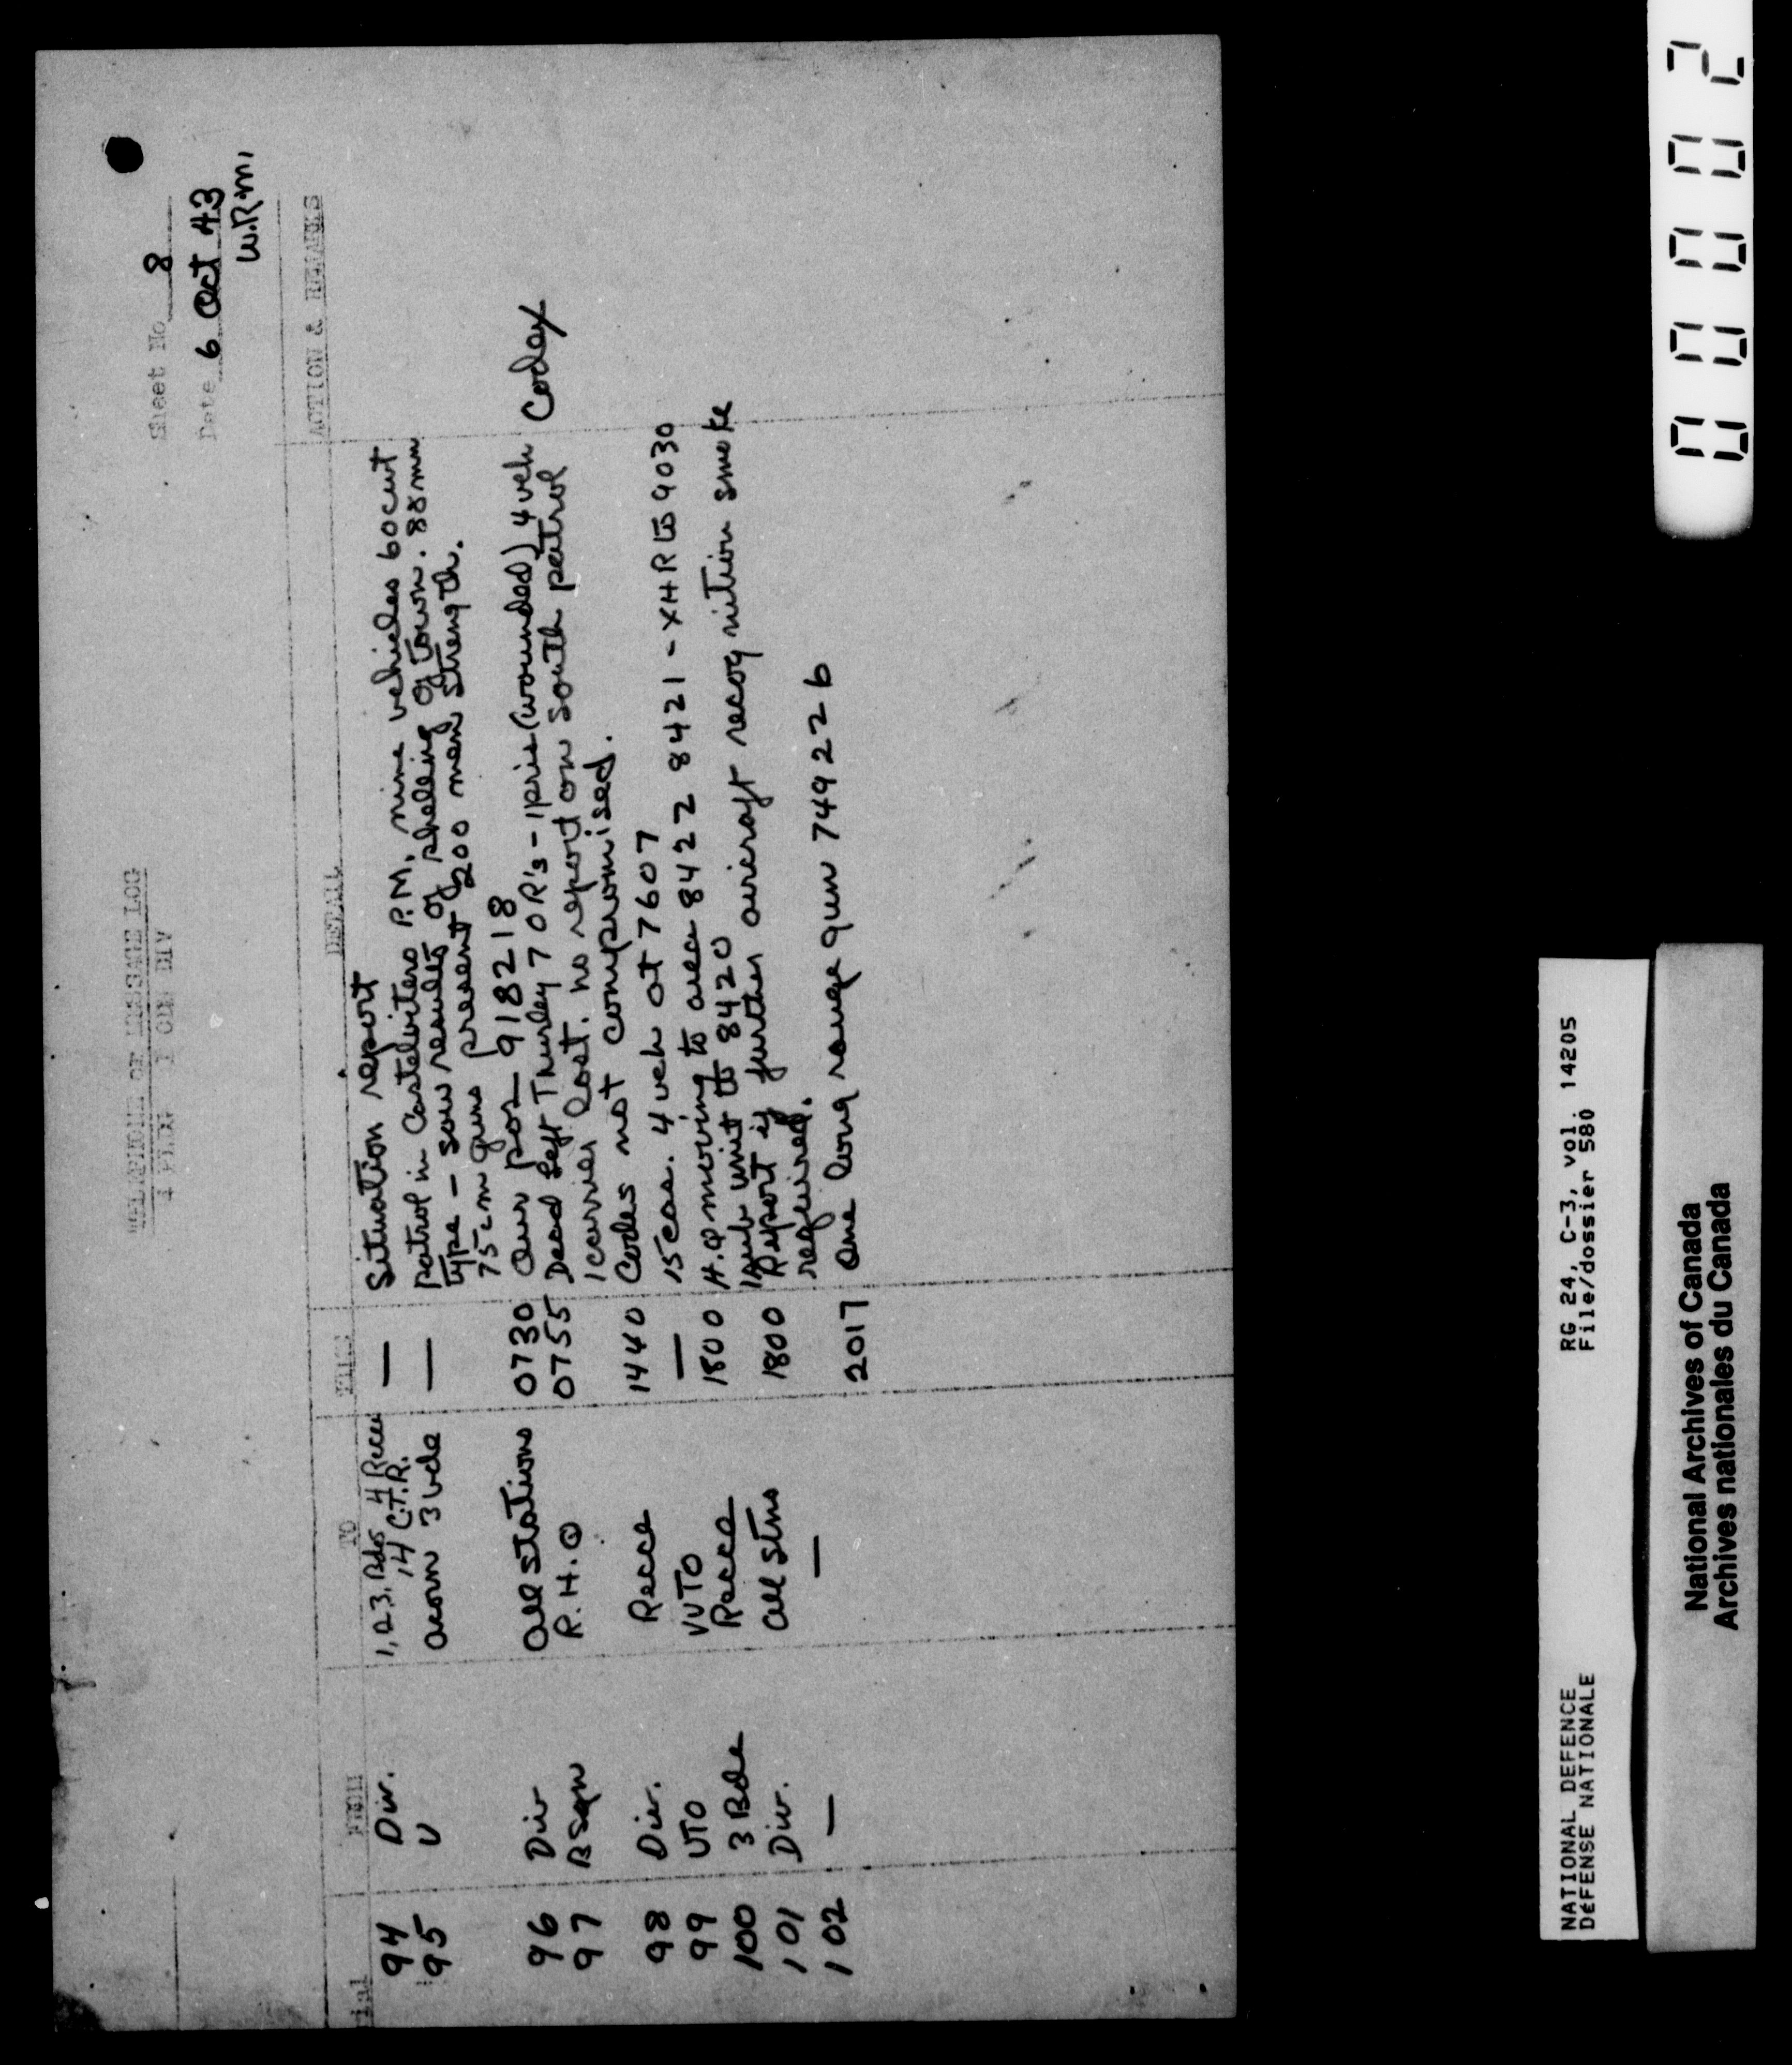 Sheet No 8
Date 6 Oct 43
W.R.M.
MESSAGE LOG
1 CDN DIV
Serial FROM TO TIME DETAIL ACTION & REMARKS
94 Div. 1, 2, 3, Bdes 4 Recce — Situation report
14 C.T.R.
95 U acorn 3 bde — patrol in Castelvitero P.M. nine vehicles 60 cwt
type – saw results of shelling of town. 88 mm
75 cm guns present 200 men strength.
96 Div All stations 0730 Our pos 918218
97 B Sqn R.H.Q 0755 Dead Left Thurley 7 OR's – 1 pris (wounded) 4 veh Codex
1 carrier lost. no report on south patrol
98 Div. Recce 1440 Codes not compromised.
99 UTO VUTO — 15 cas. 4 veh at 7607
100 3 Bde Recce 1800 H.Q moving to area 8422 8421 – XHR to 9030
1 sub unit to 8420
101 Div. All stns 1800 Report if further aircraft recognition smoke
required.
102 — — 2017 One long range gun 749226
00002
RG 24, C-3, vol. 14205
File/dossier 580
NATIONAL DEFENCE
DÉFENSE NATIONALE
National Archives of Canada
Archives nationales du Canada